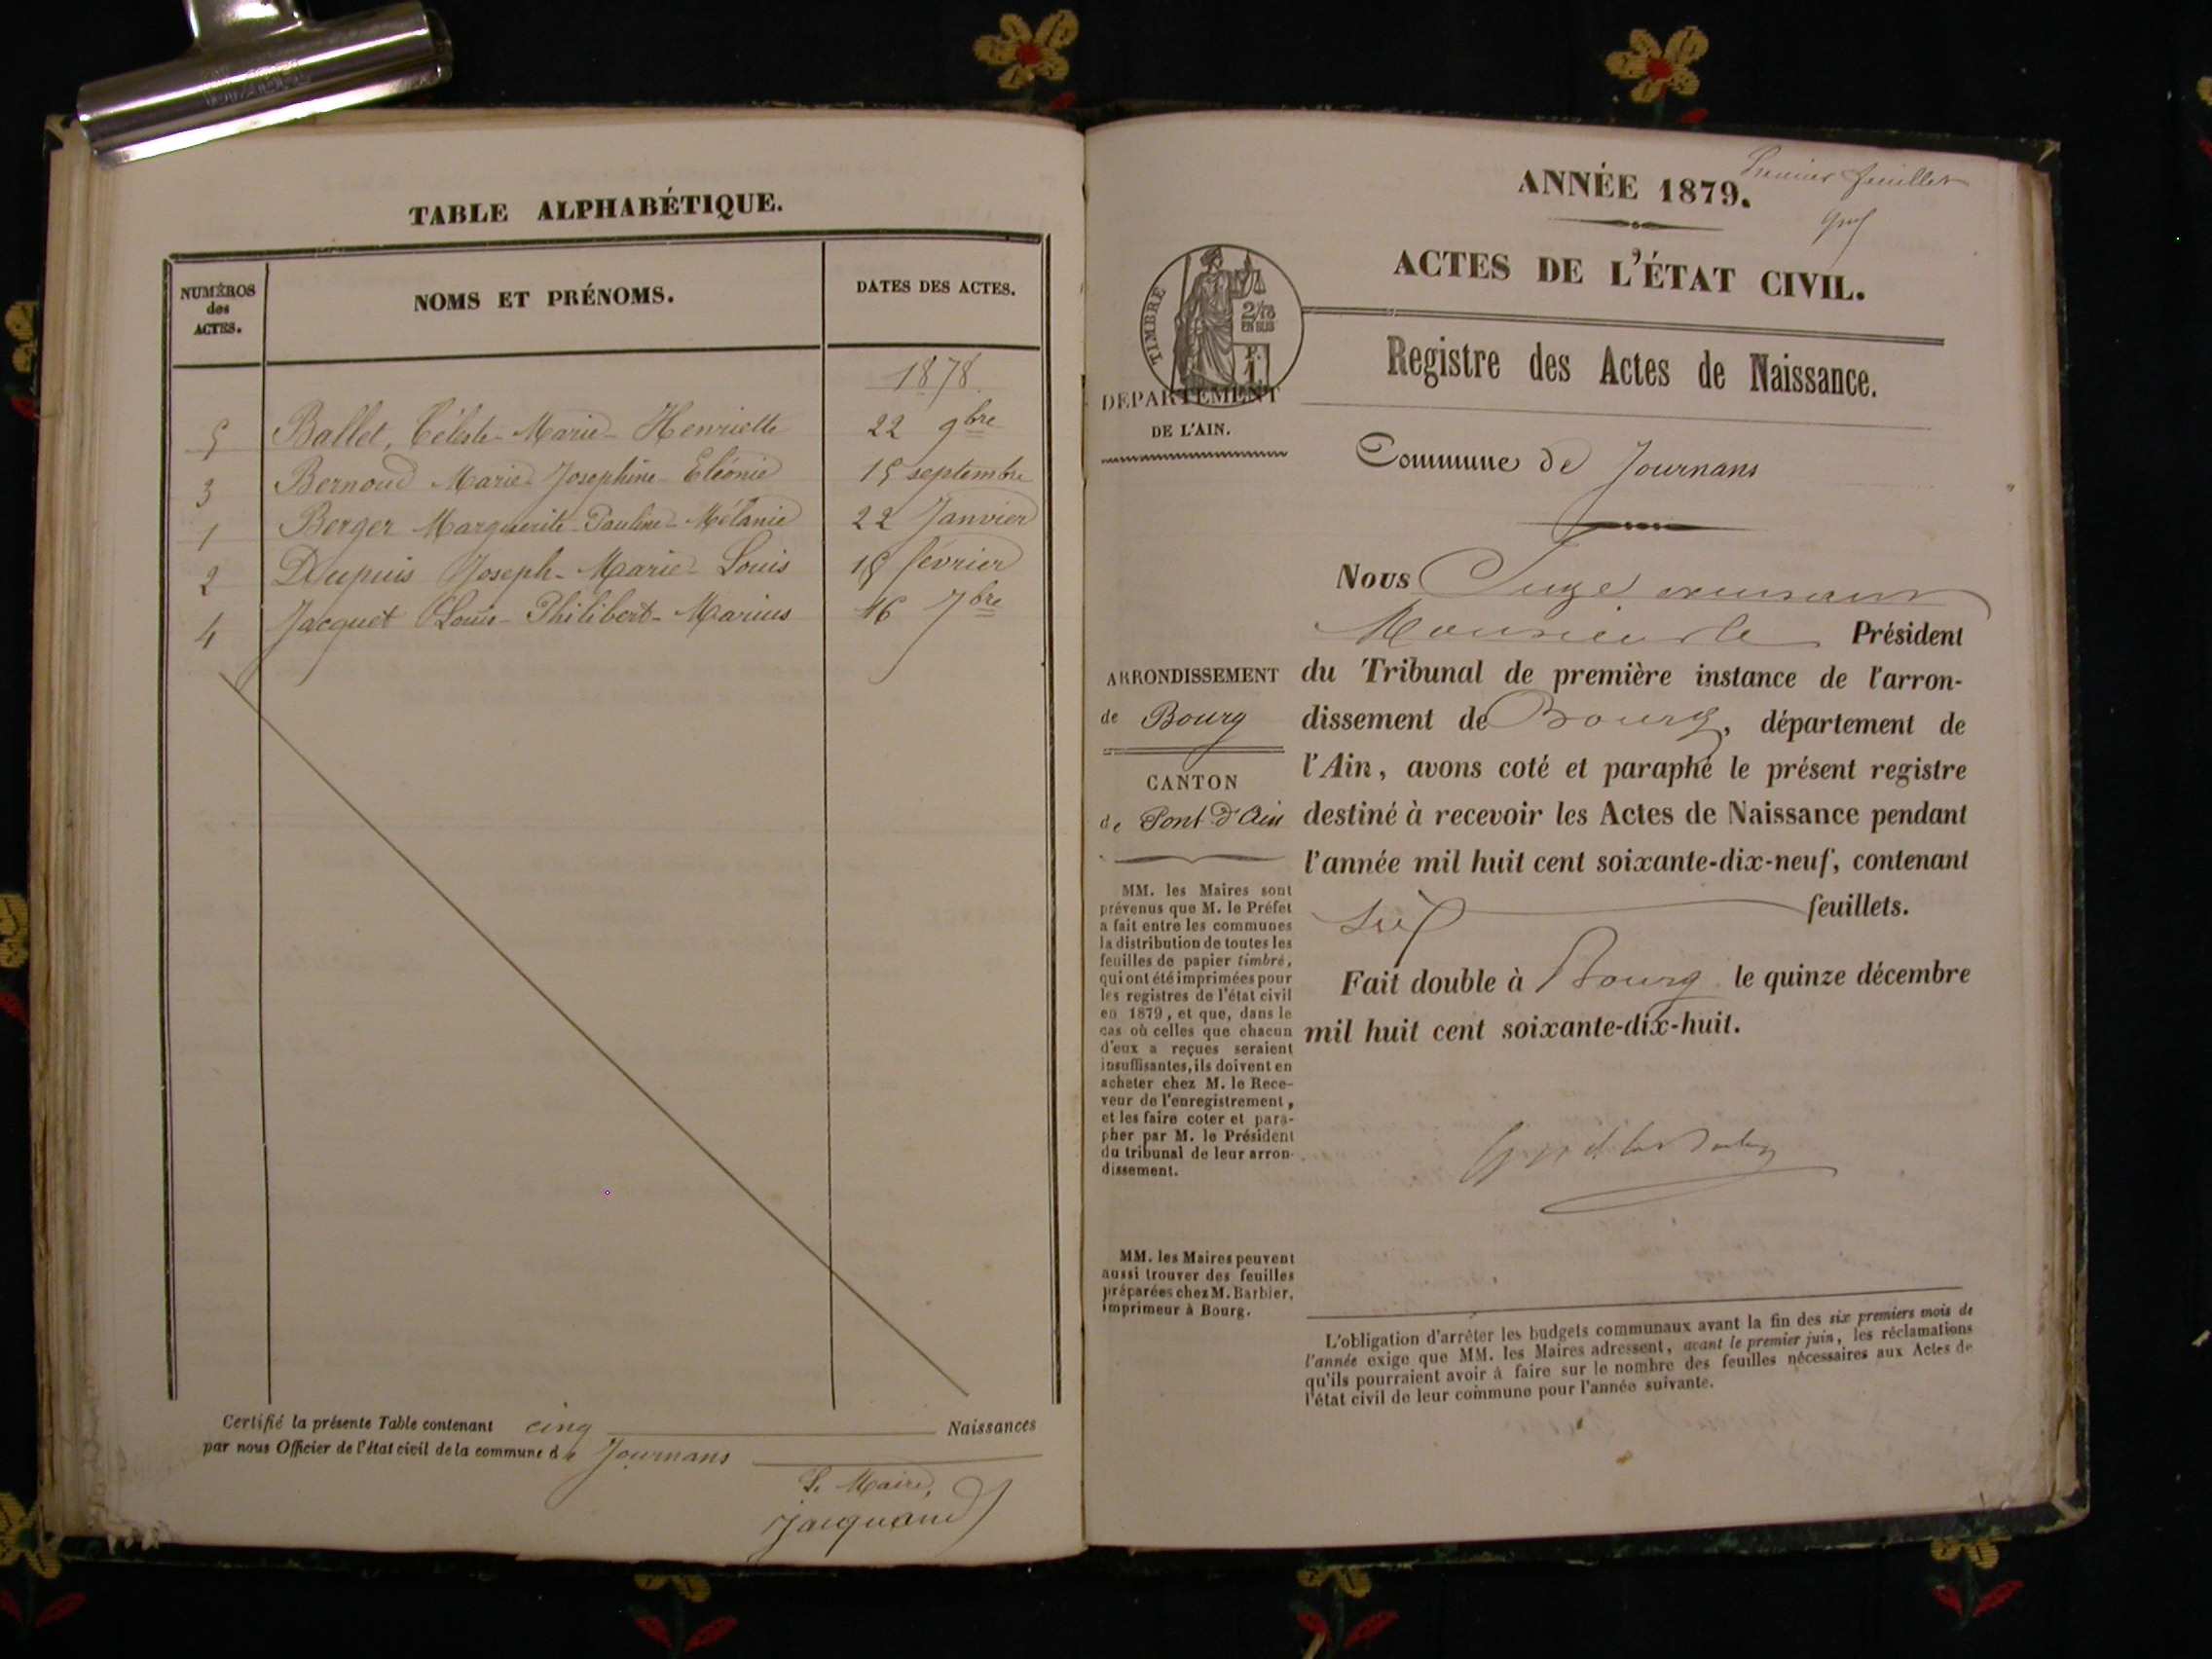 TABLE ALPHABÉTIQUE.
NUMÉROS des ACTES.
NOMS ET PRÉNOMS.
DATES DES ACTES.
1878.
5 Ballet, Céleste-Marie-Henriette 22 9bre
3 Bernoud Marie-Josephine-Eléonie 15 septembre
1 Berger Marguerite-Pauline-Mélanie 22 Janvier
2 Dupuis Joseph-Marie-Louis 18 février
4 Jacquet Louis-Philibert-Marius 16 7bre
Certifié la présente Table contenant cinq Naissances
par nous Officier de l'état civil de la commune de Journans
Le Maire,
Jacquand
Premier feuillet
ANNÉE 1879.
ACTES DE L'ÉTAT CIVIL.
Registre des Actes de Naissance.
TIMBRE
2/10
EN SUS
F.
1.
DÉPARTEMENT
DE L'AIN.
Commune de Journans
Nous Juge
Monsieur le Président
du Tribunal de première instance de l'arron-
dissement de Bourg, département de
l'Ain, avons coté et paraphé le présent registre
destiné à recevoir les Actes de Naissance pendant
l'année mil huit cent soixante-dix-neuf, contenant
six feuillets.
Fait double à Bourg le quinze décembre
mil huit cent soixante-dix-huit.
ARRONDISSEMENT
de Bourg
CANTON
de Pont d'Ain
MM. les Maires sont
prévenus que M. le Préfet
a fait entre les communes
la distribution de toutes les
feuilles de papier timbré,
qui ont été imprimées pour
les registres de l'état civil
en 1879, et que, dans le
cas où celles que chacun
d'eux a reçues seraient
insuffisantes, ils doivent en
acheter chez M. le Rece-
veur de l'enregistrement,
et les faire coter et para-
pher par M. le Président
du tribunal de leur arron-
dissement.
MM. les Maires peuvent
aussi trouver des feuilles
préparées chez M. Barbier,
imprimeur à Bourg.
L'obligation d'arrêter les budgets communaux avant la fin des six premiers mois de
l'année exige que MM. les Maires adressent, avant le premier juin, les réclamations
qu'ils pourraient avoir à faire sur le nombre des feuilles nécessaires aux Actes de
l'état civil de leur commune pour l'année suivante.